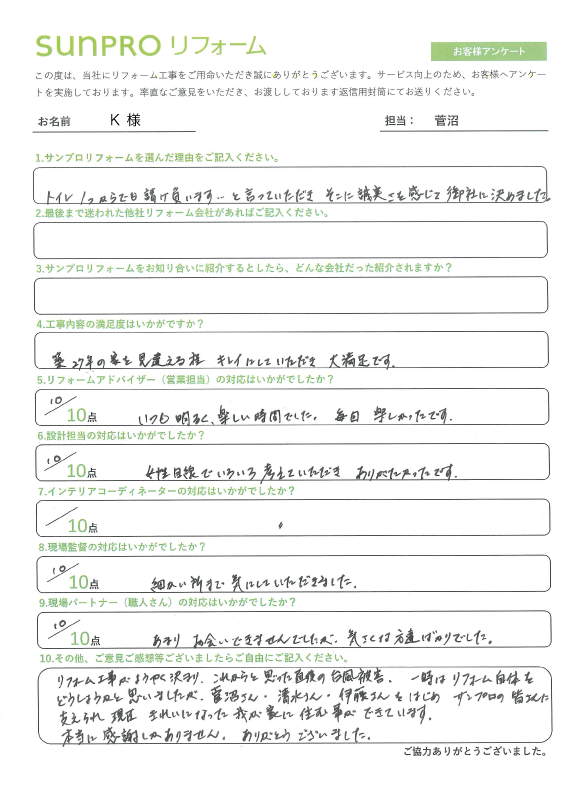 SUNPRO リフォーム
お客様アンケート
この度は、当社にリフォーム工事をご用命いただき誠にありがとうございます。サービス向上のため、お客様へアンケー
トを実施しております。率直なご意見をいただき、お渡ししております返信用封筒にてお送りください。
お名前 K 様 担当： 菅沼
1.サンプロリフォームを選んだ理由をご記入ください。
トイレ1つからでも請け負います…と言っていただき そこに誠実さを感じて御社に決めました。
2.最後まで迷われた他社リフォーム会社があればご記入ください。
3.サンプロリフォームをお知り合いに紹介するとしたら、どんな会社だった紹介されますか？
4.工事内容の満足度はいかがですか？
築27年の家を見違える程 キレイにしていただき 大満足です。
5.リフォームアドバイザー（営業担当）の対応はいかがでしたか？
10/10点 いつも明るく、楽しい時間でした。 毎回 楽しかったです。
6.設計担当の対応はいかがでしたか？
10/10点 女性目線でいろいろ考えていただき ありがたかったです。
7.インテリアコーディネーターの対応はいかがでしたか？
/10点
8.現場監督の対応はいかがでしたか？
10/10点 細かい所まで気にしていただきました。
9.現場パートナー（職人さん）の対応はいかがでしたか？
10/10点 あまり お会いできませんでしたが、気さくな方達ばかりでした。
10.その他、ご意見ご感想等ございましたらご自由にご記入ください。
リフォーム工事がようやく決まり、これからと思った直後の台風被害。 一時はリフォーム自体を
どうしようかと思いましたが、菅沼さん・清水さん・伊藤さんをはじめ サンプロの皆さんに
支えられ 現在 きれいになった我が家に住む事ができています。
本当に感謝しかありません。 ありがとうございました。
ご協力ありがとうございました。